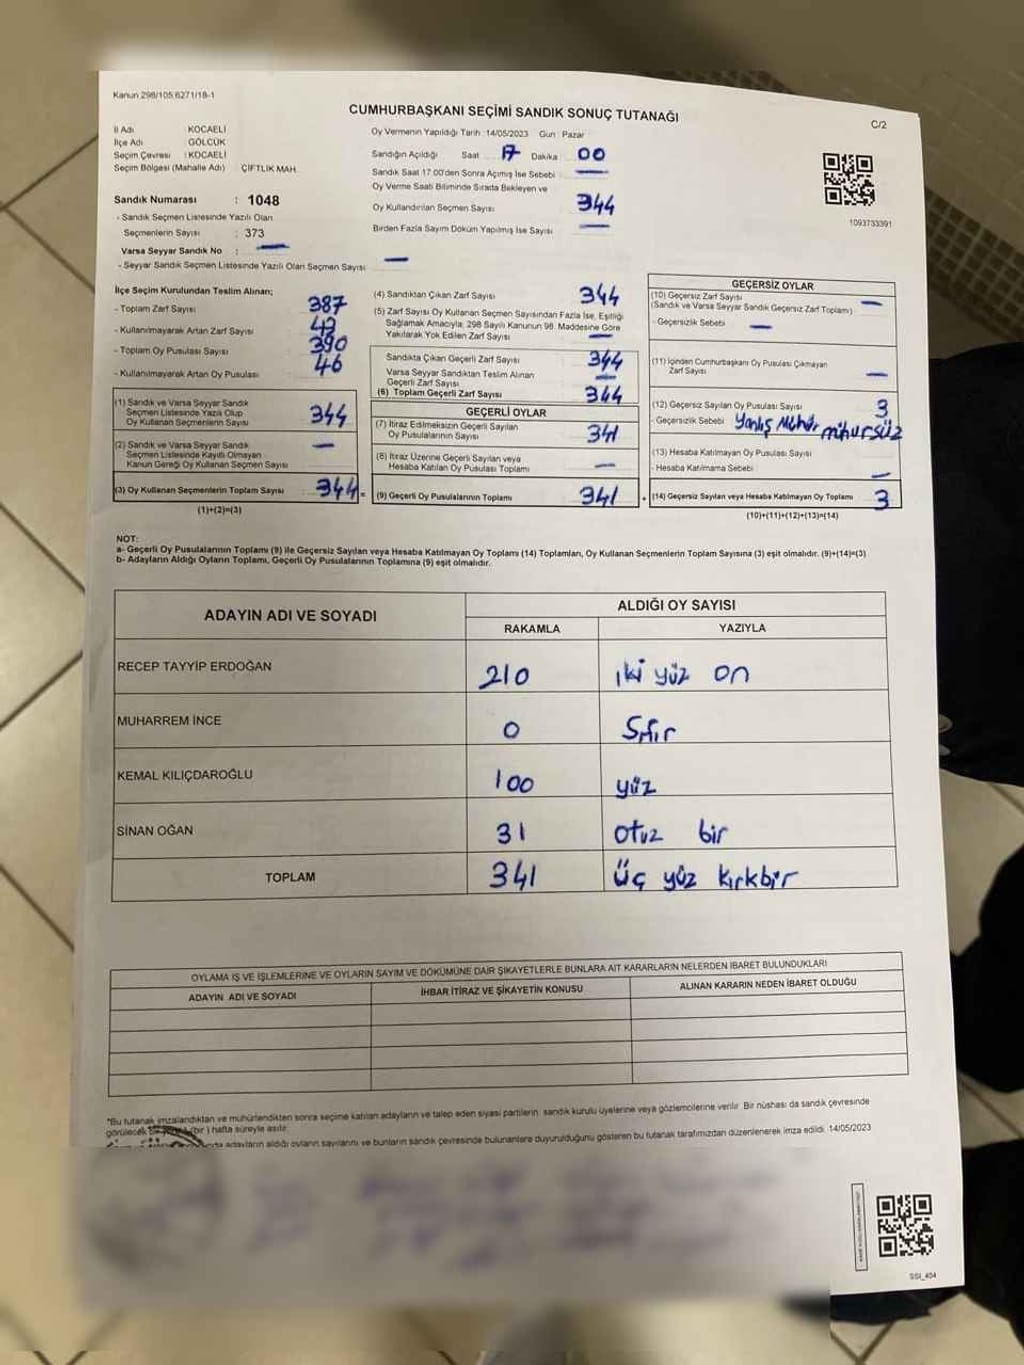 Kanun 298/105 6271/18-1
CUMHURBAŞKANI SEÇİMİ SANDIK SONUÇ TUTANAĞI
C/2
İl Adı KOCAELİ
İlçe Adı GÖLCÜK
Seçim Çevresi : KOCAELİ
Seçim Bölgesi (Mahalle Adı) ÇİFTLİK MAH.
Sandık Numarası : 1048
- Sandık Seçmen Listesinde Yazılı Olan
Seçmenlerin Sayısı : 373
Varsa Seyyar Sandık No : —
- Seyyar Sandık Seçmen Listesinde Yazılı Olan Seçmen Sayısı —
Oy Vermenin Yapıldığı Tarih : 14/05/2023 Gün : Pazar
Sandığın Açıldığı Saat 17 Dakika 00
Sandık Saat 17.00'den Sonra Açımış İse Sebebi —
Oy Verme Saati Bitiminde Sırada Bekleyen ve
Oy Kullandırılan Seçmen Sayısı 344
Birden Fazla Sayım Döküm Yapılmış İse Sayısı —
1093733391
İlçe Seçim Kurulundan Teslim Alınan;
- Toplam Zarf Sayısı 387
- Kullanılmayarak Artan Zarf Sayısı 43
- Toplam Oy Pusulası Sayısı 390
- Kullanılmayarak Artan Oy Pusulası 46
(1) Sandık ve Varsa Seyyar Sandık
Seçmen Listesinde Yazılı Olup
Oy Kullanan Seçmenlerin Sayısı 344
(2) Sandık ve Varsa Seyyar Sandık
Seçmen Listesinde Kayıtlı Olmayan
Kanun Gereği Oy Kullanan Seçmen Sayısı —
(3) Oy Kullanan Seçmenlerin Toplam Sayısı 344 =
(1)+(2)=(3)
(4) Sandıktan Çıkan Zarf Sayısı 344
(5) Zarf Sayısı Oy Kullanan Seçmen Sayısından Fazla İse, Eşitliği
Sağlamak Amacıyla, 298 Sayılı Kanunun 98. Maddesine Göre
Yakılarak Yok Edilen Zarf Sayısı —
Sandıkta Çıkan Geçerli Zarf Sayısı 344
Varsa Seyyar Sandıktan Teslim Alınan
Geçerli Zarf Sayısı —
(6) Toplam Geçerli Zarf Sayısı 344
GEÇERLİ OYLAR
(7) İtiraz Edilmeksizin Geçerli Sayılan
Oy Pusulalarının Sayısı 341
(8) İtiraz Üzerine Geçerli Sayılan veya
Hesaba Katılan Oy Pusulası Toplamı —
(9) Geçerli Oy Pusulalarının Toplamı 341 +
GEÇERSİZ OYLAR
(10) Geçersiz Zarf Sayısı —
(Sandık ve Varsa Seyyar Sandık Geçersiz Zarf Toplamı)
- Geçersizlik Sebebi —
(11) İçinden Cumhurbaşkanı Oy Pusulası Çıkmayan
Zarf Sayısı —
(12) Geçersiz Sayılan Oy Pusulası Sayısı 3
- Geçersizlik Sebebi Yanlış Mühür mühürsüz
(13) Hesaba Katılmayan Oy Pusulası Sayısı
- Hesaba Katılmama Sebebi —
(14) Geçersiz Sayılan veya Hesaba Katılmayan Oy Toplamı 3
(10)+(11)+(12)+(13)=(14)
NOT:
a- Geçerli Oy Pusulalarının Toplamı (9) ile Geçersiz Sayılan veya Hesaba Katılmayan Oy Toplamı (14) Toplamları, Oy Kullanan Seçmenlerin Toplam Sayısına (3) eşit olmalıdır. (9)+(14)=(3)
b- Adayların Aldığı Oyların Toplamı, Geçerli Oy Pusulalarının Toplamına (9) eşit olmalıdır.
ADAYIN ADI VE SOYADI
ALDIĞI OY SAYISI
RAKAMLA YAZIYLA
RECEP TAYYİP ERDOĞAN 210 iki yüz on
MUHARREM İNCE 0 Sıfır
KEMAL KILIÇDAROĞLU 100 yüz
SİNAN OĞAN 31 otuz bir
TOPLAM 341 Üç yüz kırkbir
OYLAMA İŞ VE İŞLEMLERİNE VE OYLARIN SAYIM VE DÖKÜMÜNE DAİR ŞİKAYETLERLE BUNLARA AİT KARARLARIN NELERDEN İBARET BULUNDUKLARI
ADAYIN ADI VE SOYADI İHBAR İTİRAZ VE ŞİKAYETİN KONUSU ALINAN KARARIN NEDEN İBARET OLDUĞU
*Bu tutanak imzalandıktan ve mühürlendikten sonra seçime katılan adayların ve talep eden siyasi partilerin sandık kurulu üyelerine veya gözlemcilerine verilir. Bir nüshası da sandık çevresinde
görülecek bir (bir) hafta süreyle asılır.
adayların aldığı oyların sayılarını ve bunların sandık çevresinde bulunanlara duyurulduğunu gösteren bu tutanak tarafımızdan düzenlenerek imza edildi. 14/05/2023
SSI_404